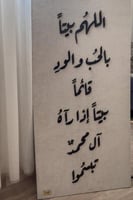 اللهُم بيتاً
بالحُب والودِ
قائماً
بيتاً إذا رآهُ
آل محمدٌ
تبسمُوا